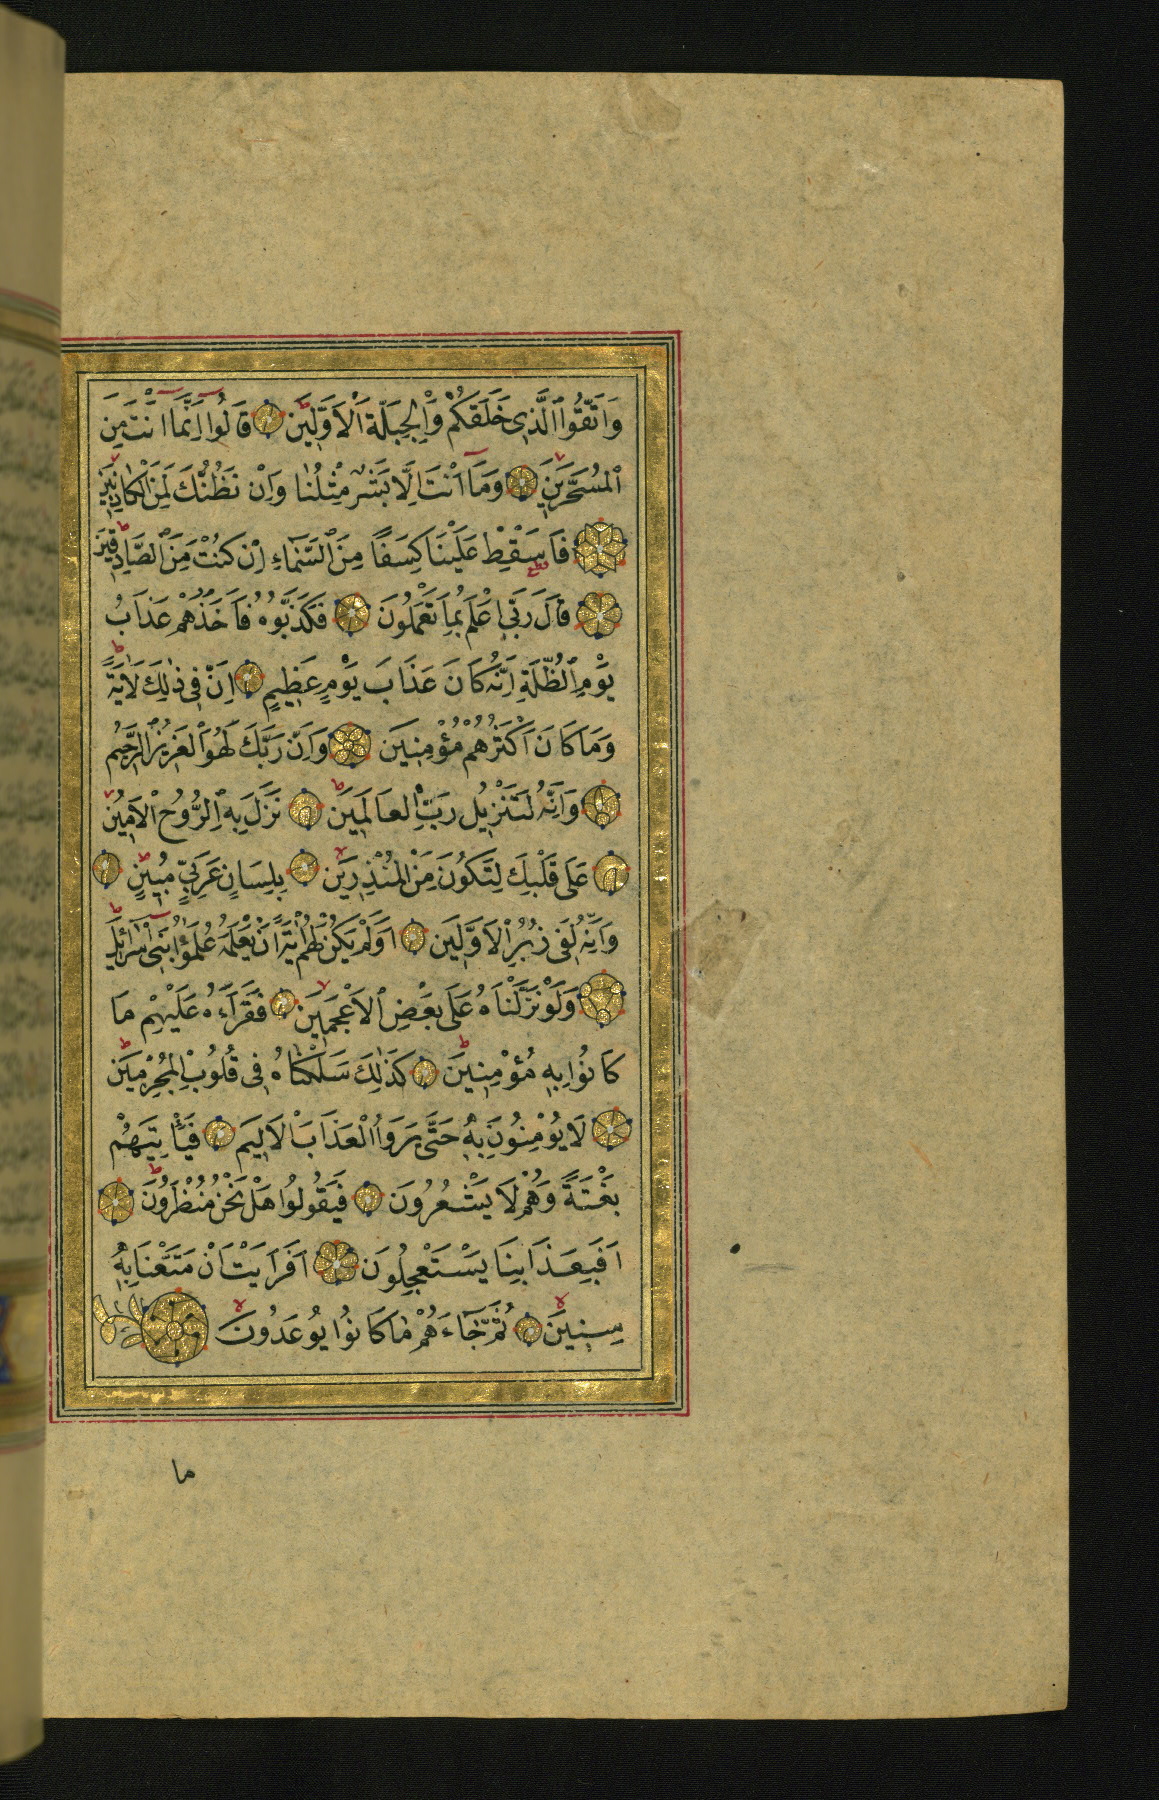 وَاتَّقُوا الَّذِى خَلَقَكُمْ وَالْجِبِلَّةَ الْاَوَّلِينَ قَالُوا اِنَّمَا اَنْتَ مِنَ
الْمُسَحَّرِينَ وَمَا اَنْتَ اِلَّا بَشَرٌ مِثْلُنَا وَاِنْ نَظُنُّكَ لَمِنَ الْكَاذِبِينَ
فَاَسْقِطْ عَلَيْنَا كِسَفًا مِنَ السَّمَاءِ اِنْ كُنْتَ مِنَ الصَّادِقِينَ
قَالَ رَبِّى اَعْلَمُ بِمَا تَعْمَلُونَ فَكَذَّبُوهُ فَاَخَذَهُمْ عَذَابُ
يَوْمِ الظُّلَّةِ اِنَّهُ كَانَ عَذَابَ يَوْمٍ عَظِيمٍ اِنَّ فِى ذٰلِكَ لَاٰيَةً
وَمَا كَانَ اَكْثَرُهُمْ مُؤْمِنِينَ وَاِنَّ رَبَّكَ لَهُوَ الْعَزِيزُ الرَّحِيمُ
وَاِنَّهُ لَتَنْزِيلُ رَبِّ الْعَالَمِينَ نَزَلَ بِهِ الرُّوحُ الْاَمِينُ
عَلٰى قَلْبِكَ لِتَكُونَ مِنَ الْمُنْذِرِينَ بِلِسَانٍ عَرَبِىٍّ مُبِينٍ
وَاِنَّهُ لَفِى زُبُرِ الْاَوَّلِينَ اَوَلَمْ يَكُنْ لَهُمْ اٰيَةً اَنْ يَعْلَمَهُ عُلَمٰٓؤُا بَنِى اِسْرَائِيلَ
وَلَوْ نَزَّلْنَاهُ عَلٰى بَعْضِ الْاَعْجَمِينَ فَقَرَاَهُ عَلَيْهِمْ مَا
كَانُوا بِهِ مُؤْمِنِينَ كَذٰلِكَ سَلَكْنَاهُ فِى قُلُوبِ الْمُجْرِمِينَ
لَا يُؤْمِنُونَ بِهِ حَتّٰى يَرَوُا الْعَذَابَ الْاَلِيمَ فَيَأْتِيَهُمْ
بَغْتَةً وَهُمْ لَا يَشْعُرُونَ فَيَقُولُوا هَلْ نَحْنُ مُنْظَرُونَ
اَفَبِعَذَابِنَا يَسْتَعْجِلُونَ اَفَرَاَيْتَ اِنْ مَتَّعْنَاهُمْ
سِنِينَ ثُمَّ جَاءَهُمْ مَا كَانُوا يُوعَدُونَ
ما